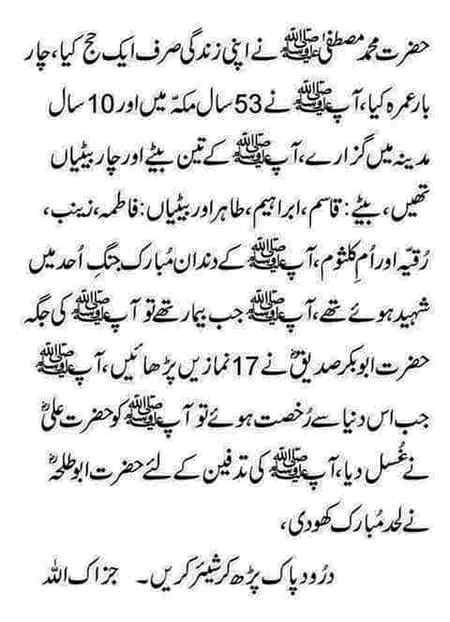 حضرت محمد مصطفیٰ ﷺ نے اپنی زندگی صرف ایک حج کیا، چار
بار عمرہ کیا، آپ ﷺ نے 53 سال مکہّ میں اور 10 سال
مدینہ میں گزارے، آپ ﷺ کے تین بیٹے اور چار بیٹیاں
تھیں، بیٹے: قاسم، ابراہیم، طاہر اور بیٹیاں: فاطمہ، زینب،
رُقیّہ اور اُمِ کلثوم، آپ ﷺ کے دندان مُبارک جنگِ اُحد میں
شہید ہوئے تھے، آپ ﷺ جب بیمار تھے تو آپ ﷺ کی جگہ
حضرت ابوبکر صدیقؓ نے 17 نمازیں پڑھائیں، آپ ﷺ
جب اس دنیا سے رُخصت ہوئے تو آپ ﷺ کو حضرت علیؓ
نے غُسل دیا، آپ ﷺ کی تدفین کے لئے حضرت ابو طلحہؓ
نے لحد مُبارک کھودی،
درُود پاک پڑھ کر شیئر کریں۔ جزاک اللہ